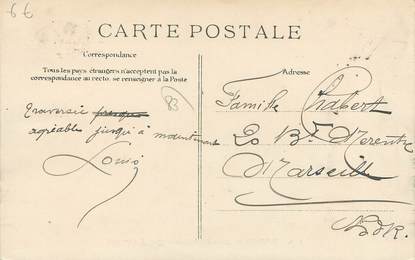 6€
CARTE POSTALE
Correspondance
Tous les pays étrangers n'acceptent pas la
correspondance au recto. se renseigner à la Poste
Adresse
83
Traversée jusque
agréable jusqu'à maintenant
Louis
Famille Chabert
20 Bd
Marseille